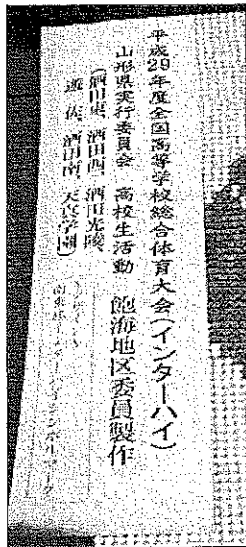 平成29年度全国高等学校総合体育大会(インターハイ)
山形県実行委員会 高校生活動 飽海地区委員製作
(酒田東、酒田西、酒田光陵、
遊佐、酒田南、天真学園)